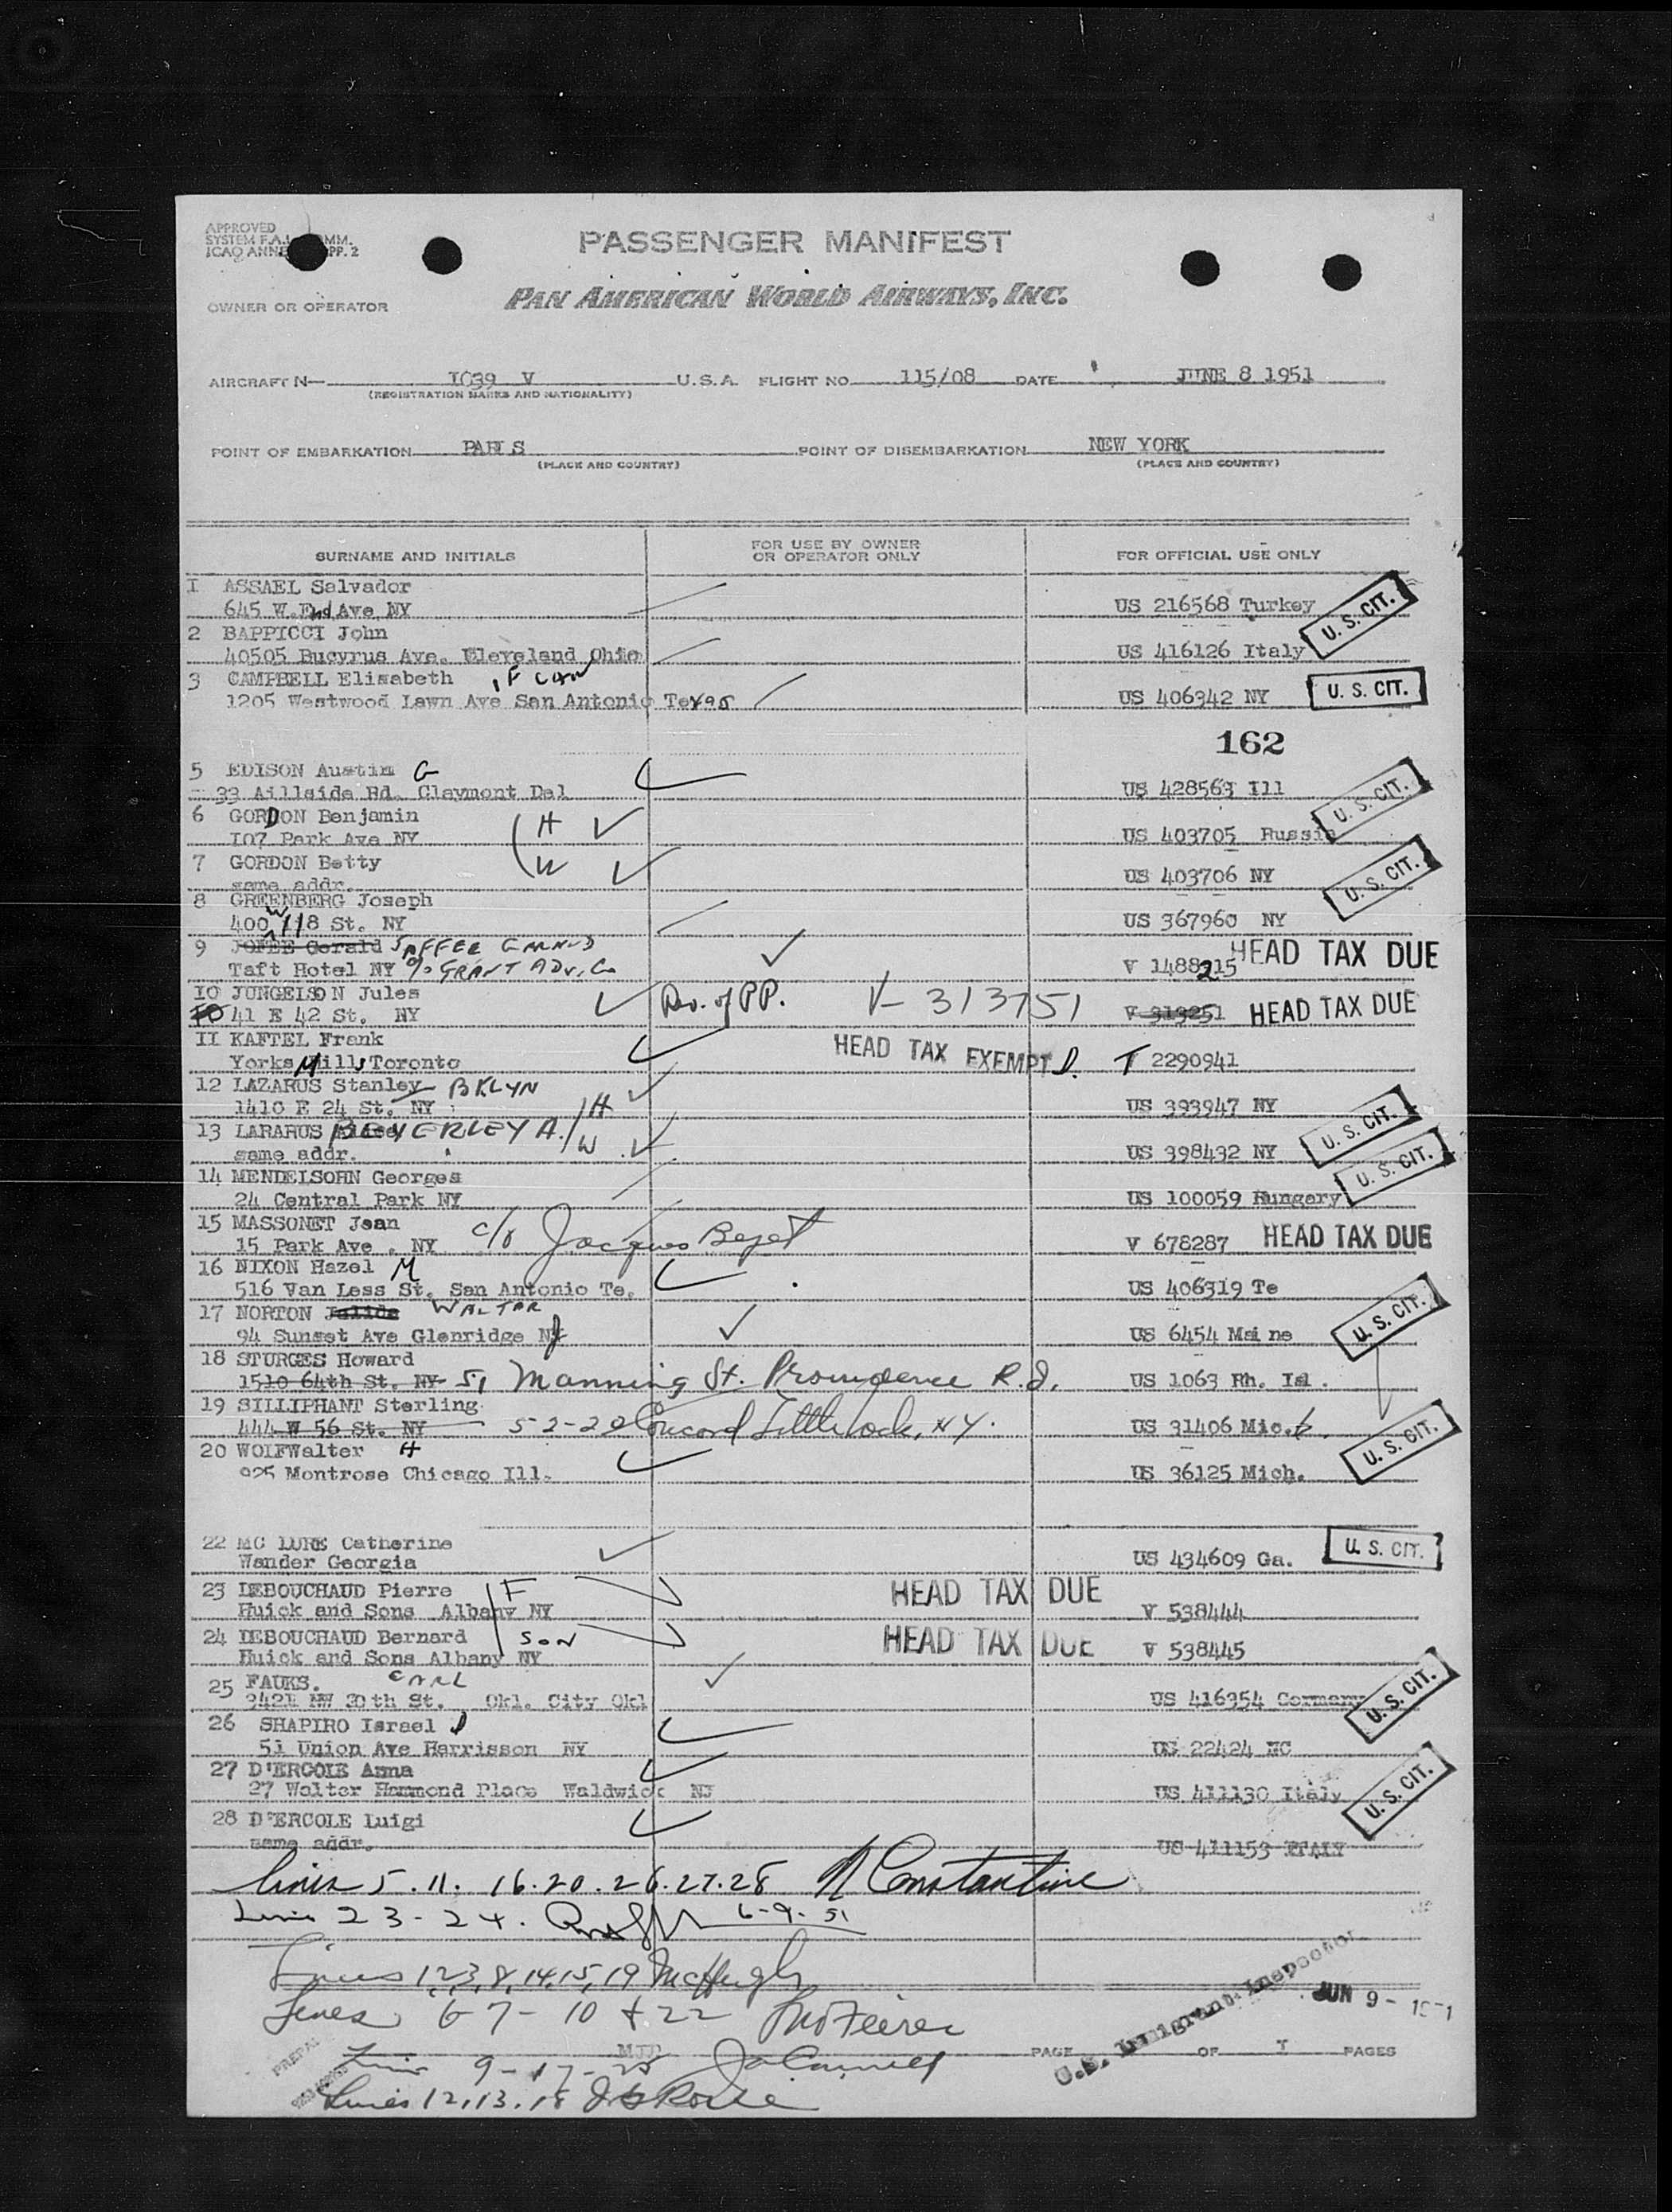 APPROVED
SYSTEM F.A.L. COMM.
ICAO ANNEX APP. 2
PASSENGER MANIFEST
OWNER OR OPERATOR
PAN AMERICAN WORLD AIRWAYS, INC.
AIRCRAFT N— 1039 V U.S.A. FLIGHT NO. 115/08 DATE JUNE 8 1951
(REGISTRATION MARKS AND NATIONALITY)
POINT OF EMBARKATION PARIS POINT OF DISEMBARKATION NEW YORK
(PLACE AND COUNTRY) (PLACE AND COUNTRY)
SURNAME AND INITIALS FOR USE BY OWNER OR OPERATOR ONLY FOR OFFICIAL USE ONLY
1 ASSAEL Salvador
645 W. End Ave NY US 216568 Turkey U. S. CIT.
2 BAPPICCI John
40505 Bucyrus Ave. Cleveland Ohio US 416126 Italy
3 CAMPBELL Elisabeth
1205 Westwood Lawn Ave San Antonio Texas US 406342 NY U. S. CIT.
162
5 EDISON Austin G
33 Aillside Rd. Claymont Del US 428563 Ill U. S. CIT.
6 GORDON Benjamin H
107 Park Ave NY US 403705 Russia
7 GORDON Betty W
same addr. US 403706 NY U. S. CIT.
8 GREENBERG Joseph
400 W 118 St. NY US 367960 NY
9 JOFEE Gerald JAFFEE
Taft Hotel NY % GRANT ADV. Co V 1488215 HEAD TAX DUE
10 JUNGELSON Jules
41 E 42 St. NY V-313751 V 313251 HEAD TAX DUE
11 KAFTEL Frank
Yorks Mills Toronto HEAD TAX EXEMPT T 2290941
12 LAZARUS Stanley BKLYN
1410 E 24 St. NY H US 393947 NY
13 LARARUS BEVERLEY A. W
same addr. US 398432 NY U. S. CIT.
14 MENDELSOHN Georges
24 Central Park NY US 100059 Hungary U. S. CIT.
15 MASSONET Jean c/o Jacques
15 Park Ave . NY V 678287 HEAD TAX DUE
16 NIXON Hazel M
516 Van Less St. San Antonio Te. US 406319 Te
17 NORTON WALTER
94 Sunset Ave Glenridge NJ US 6454 Maine U. S. CIT.
18 STURGES Howard
1510 64th St. NY 51 Manning St. Providence R.I. US 1063 Rh. Isl.
19 SILLIPHANT Sterling
444 W 56 St. NY 52-29 Concord Little Neck, NY. US 31406 Mic
20 WOLFWalter H
925 Montrose Chicago Ill. US 36125 Mich. U. S. CIT.
22 MC LURE Catherine
Wander Georgia US 434609 Ga. U. S. CIT.
23 LEBOUCHAUD Pierre F
Huick and Sons Albany NY HEAD TAX DUE V 538444
24 LEBOUCHAUD Bernard SON
Huick and Sons Albany NY HEAD TAX DUE V 538445
25 FAUKS. EARL
NW 30th St. Okl. City Okl US 416354 Germany U. S. CIT.
26 SHAPIRO Israel D
51 Union Ave Harrisson NY US 22424 NC
27 D'ERCOLE Anna
27 Walter Hammond Place Waldwick NJ US 411130 Italy U. S. CIT.
28 D'ERCOLE Luigi
same addr. US 411153 ITALY
Lines 5.11. 16.20.26.27.28 N Constantine
Lines 23-24. 6-9-51
Lines 1,2,3,8,14,15,19 McHugh
Lines 6 7 - 10 + 22
U.S. Immigrant Inspector JUN 9 - 1951
MJP PAGE OF 1 PAGES
Lines 9-17-25
Lines 12,13.18